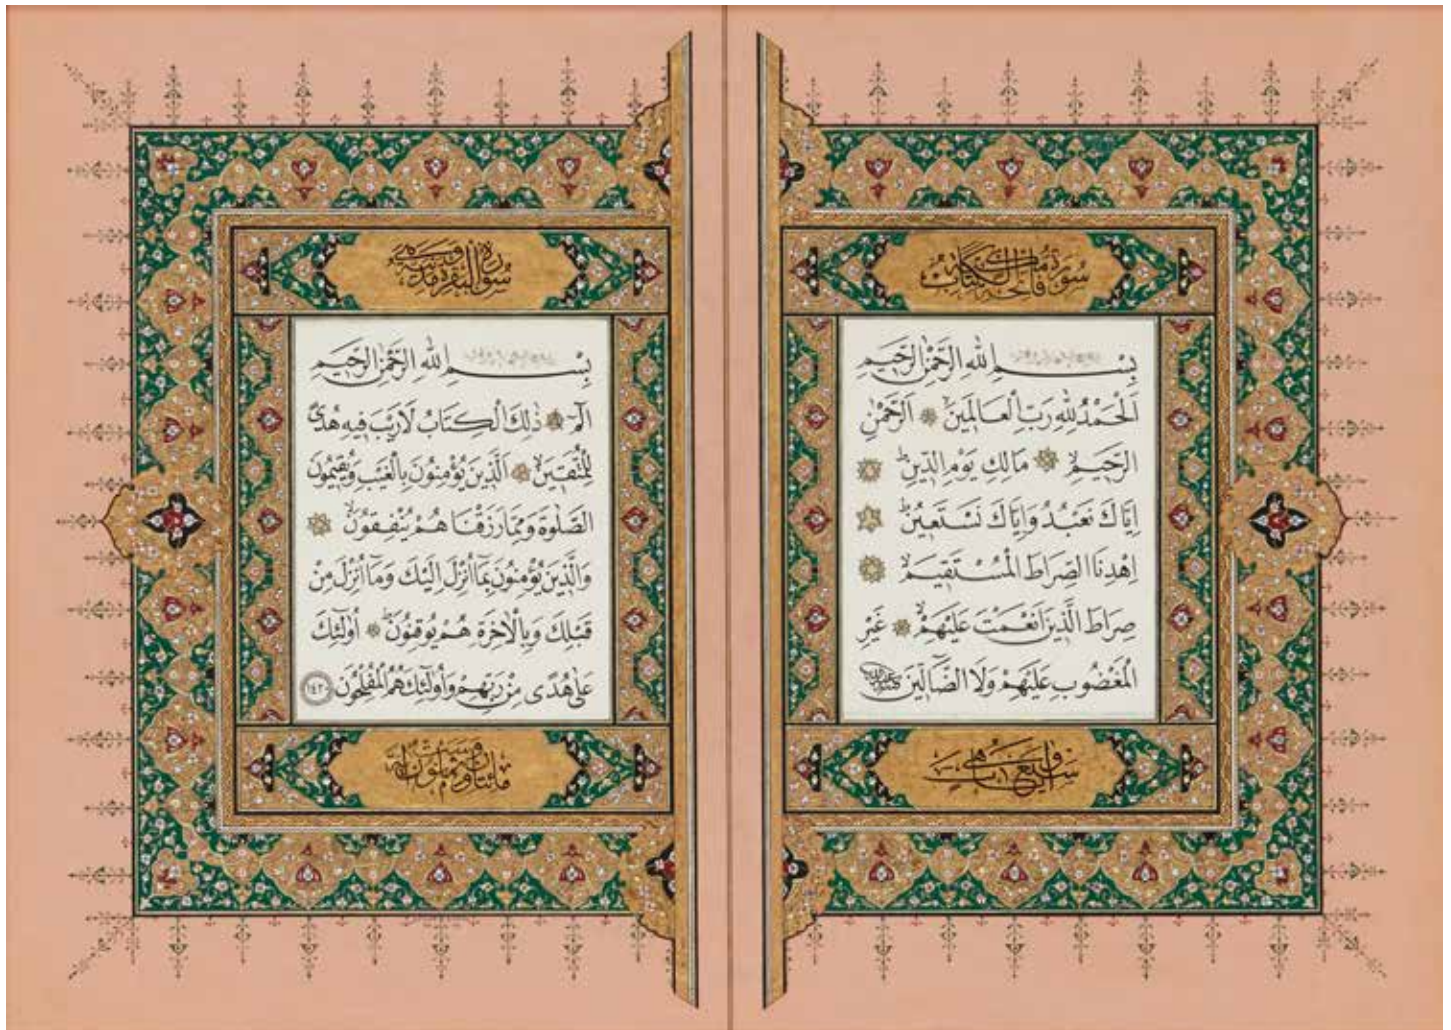 سورة فاتحة الكتاب مكية
بِسْمِ اللهِ الرَّحْمٰنِ الرَّحِيمِ
اَلْحَمْدُ لِلّٰهِ رَبِّ الْعَالَمِينَۙ اَلرَّحْمٰنِ
الرَّحِيمِۙ مَالِكِ يَوْمِ الدِّينِۜ
اِيَّاكَ نَعْبُدُ وَاِيَّاكَ نَسْتَعِينُۜ
اِهْدِنَا الصِّرَاطَ الْمُسْتَقِيمَۙ
صِرَاطَ الَّذِينَ اَنْعَمْتَ عَلَيْهِمْۙ غَيْرِ
الْمَغْضُوبِ عَلَيْهِمْ وَلَا الضَّٓالِّينَ
وهي سبع آيات
سورة البقرة مدنية وهي
بِسْمِ اللهِ الرَّحْمٰنِ الرَّحِيمِ
الٓمٓۚ ذٰلِكَ الْكِتَابُ لَا رَيْبَ فِيهِ هُدًى
لِلْمُتَّقِينَۙ اَلَّذِينَ يُؤْمِنُونَ بِالْغَيْبِ وَيُقِيمُونَ
الصَّلٰوةَ وَمِمَّا رَزَقْنَاهُمْ يُنْفِقُونَۙ
وَالَّذِينَ يُؤْمِنُونَ بِمَٓا اُنْزِلَ اِلَيْكَ وَمَٓا اُنْزِلَ مِنْ
قَبْلِكَ وَبِالْاٰخِرَةِ هُمْ يُوقِنُونَۜ اُولٰٓئِكَ
عَلٰى هُدًى مِنْ رَبِّهِمْ وَاُولٰٓئِكَ هُمُ الْمُفْلِحُونَ
مائتان وست وثمانون آية